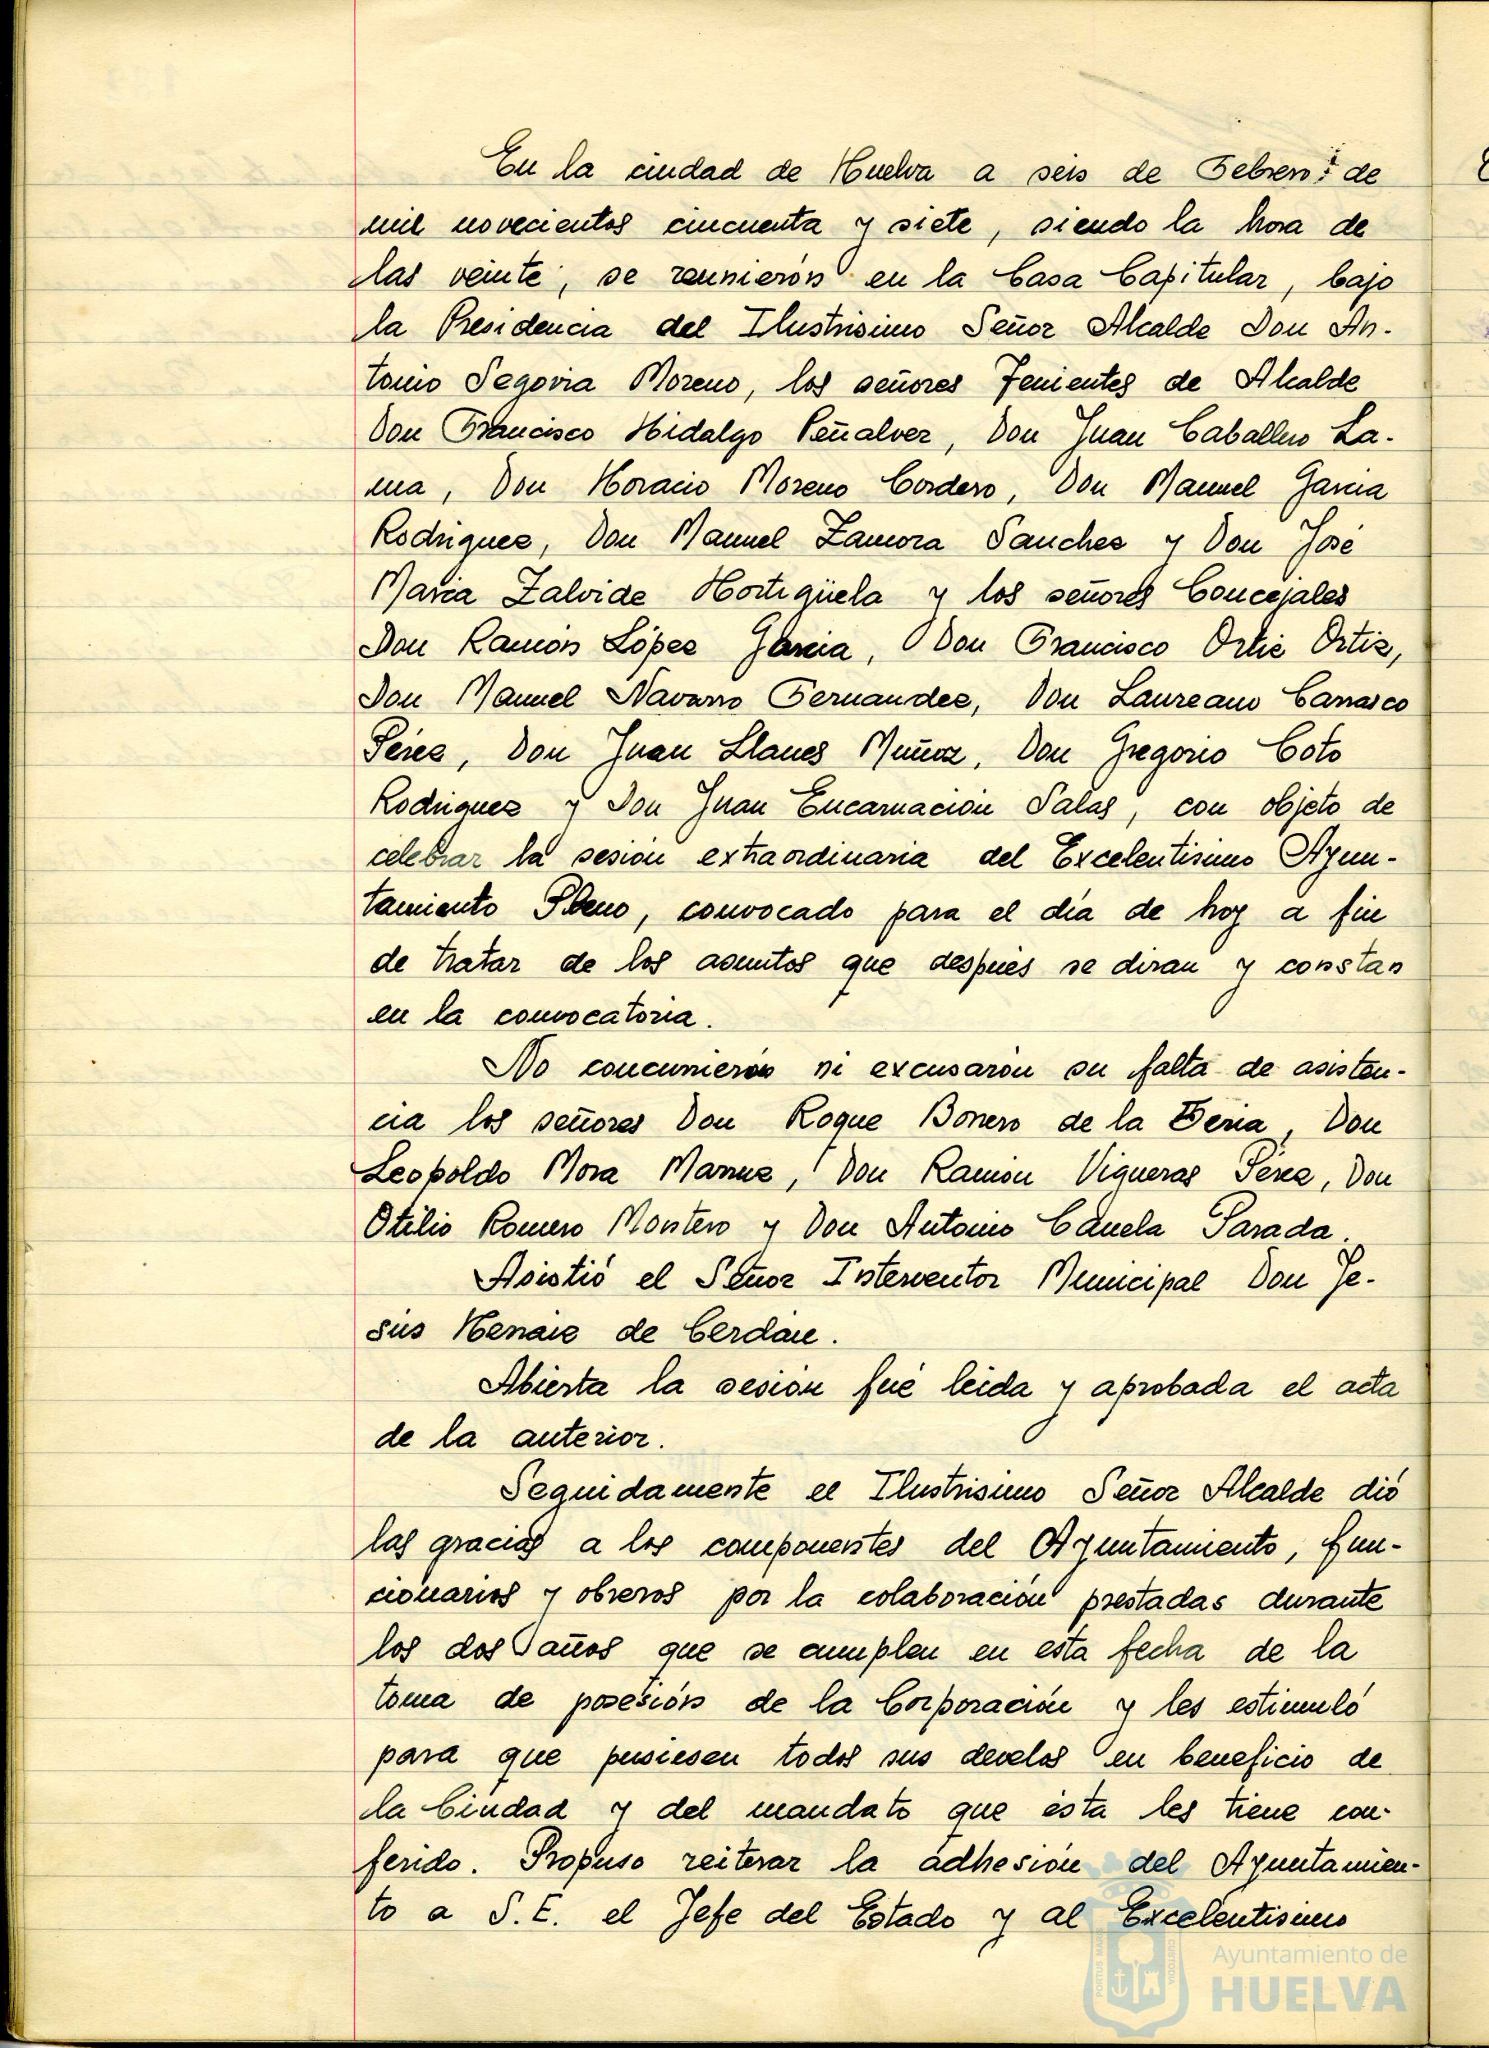 En la ciudad de Huelva a seis de Febrero de
mil novecientos cincuenta y siete, siendo la hora de
las veinte, se reunierón en la Casa Capitular, bajo
la Presidencia del Ilustrisimo Señor Alcalde Don An-
tonio Segovia Moreno, los señores Tenientes de Alcalde
Don Francisco Hidalgo Peñalver, Don Juan Caballero La-
ma, Don Horacio Moreno Cordero, Don Manuel Garcia
Rodriguez, Don Manuel Zamora Sanchez y Don José
Maria Zalvide Hortigüela y los señores Concejales
Don Ramón López Garcia, Don Francisco Ortiz Ortiz,
Don Manuel Navarro Fernandez, Don Laureano Carrasco
Pérez, Don Juan Llanes Muñoz, Don Gregorio Coto
Rodriguez y Don Juan Encarnación Salas, con objeto de
celebrar la sesión extraordinaria del Excelentisimo Ayun-
tamiento Pleno, convocado para el día de hoy a fin
de tratar de los asuntos que después se diran y constan
en la convocatoria.
No concurrierón ni excusarón su falta de asisten-
cia los señores Don Roque Borrero de la Feria, Don
Leopoldo Mora Don Ramón Vigueras Pérez, Don
Otilio Romero Montero y Don Antonio Canela Parada.
Asistió el Señor Interventor Municipal Don Je-
sús de Cerdán.
Abierta la sesión fué leida y aprobada el acta
de la anterior.
Seguidamente el Ilustrisimo Señor Alcalde dió
las gracias a los componentes del Ayuntamiento, fun-
cionarios y obreros por la colaboración prestadas durante
los dos años que se cumplen en esta fecha de la
toma de posesión de la Corporación y les estimuló
para que pusiesen todos sus develos en beneficio de
la Ciudad y del mandato que ésta les tiene con-
ferido. Propuso reiterar la adhesión del Ayuntamien-
to a S.E. el Jefe del Estado y al Excelentisimo
PORTUS MARIS CUSTODIA
Ayuntamiento de
HUELVA